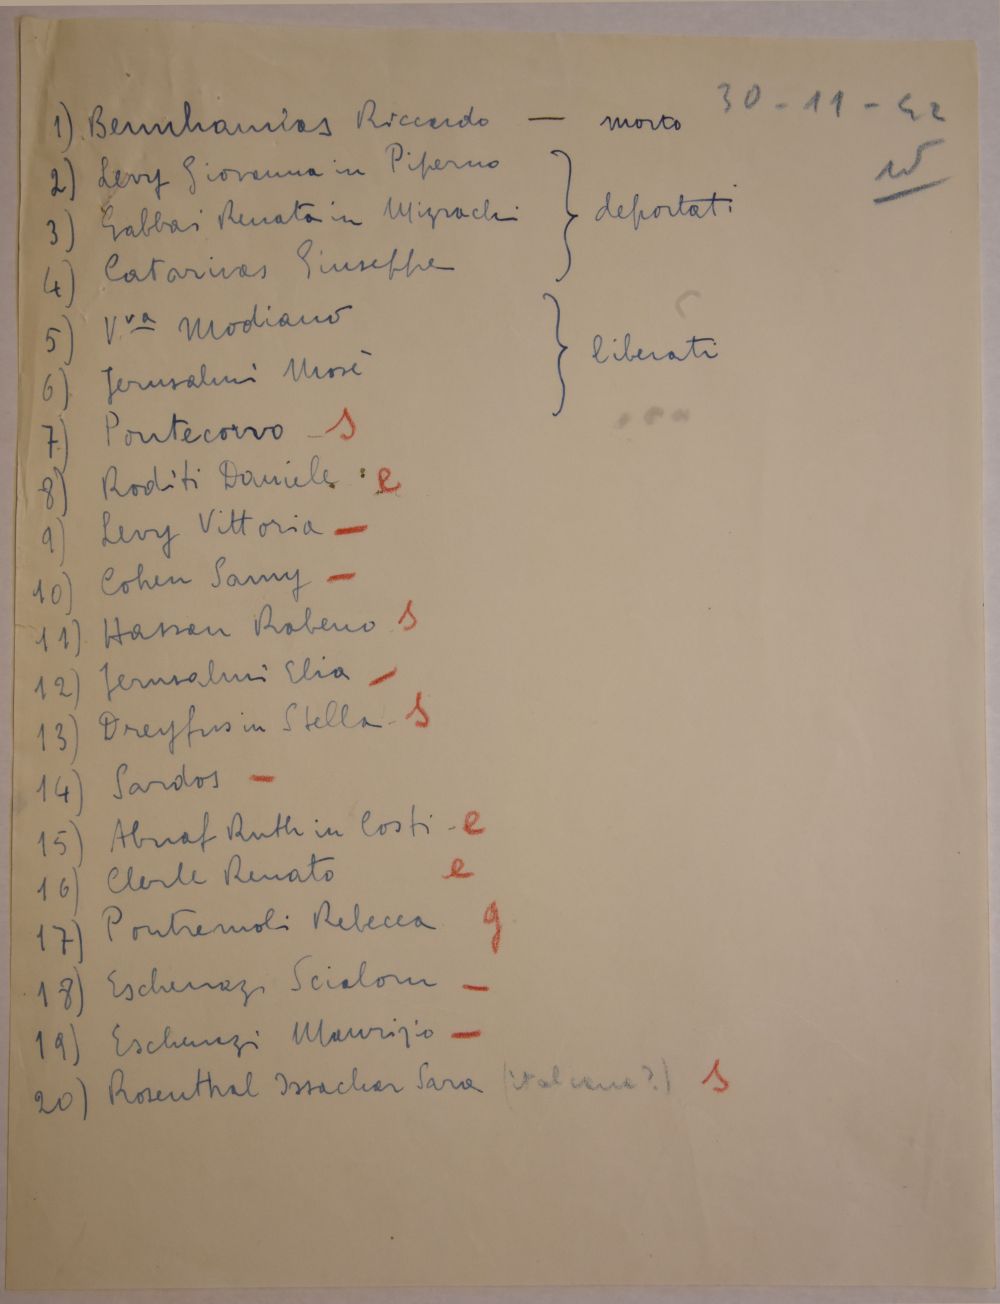 30-11-42
1) Benrhamias Riccardo — morto
2) Levy Giovanna in Piperno
3) Gabbai Renata in Mizrachi } deportati
4) Catarivas Giuseppe
5) Vva Modiano
6) Jerusalmi Mosè } liberati
7) Pontecorvo - S
8) Roditi Daniele e
9) Levy Vittoria —
10) Cohen Samy —
11) Hassan Robeno S
12) Jerusalmi Elia —
13) Dreyfus in Stella - S
14) Sardos —
15) Abuaf Ruth in Costi - e
16) Clerle Renato e
17) Pontremoli Rebecca g
18) Eschenazi Scialom —
19) Eschenazi Maurizio —
20) Rosenthal Issachar Sara (italiana?) S